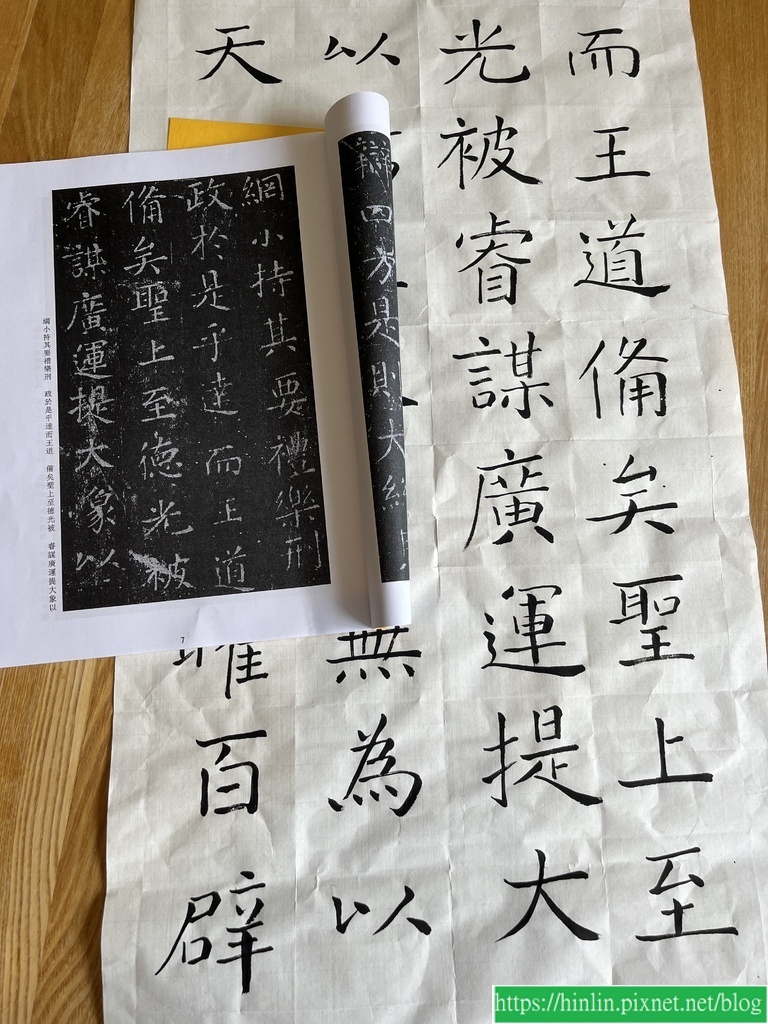 而王道備矣聖上至
光被睿謀廣運提大
以無為以
天曜百辟
辯四方是則大
綱小持其要禮樂刑
政於是乎達而王道
備矣聖上至德光被
睿謀廣運提大象以
綱小持其要禮樂刑　政於是乎達而王道　備矣聖上至德光被　睿謀廣運提大象以
7
https://hinlin.pixnet.net/blog